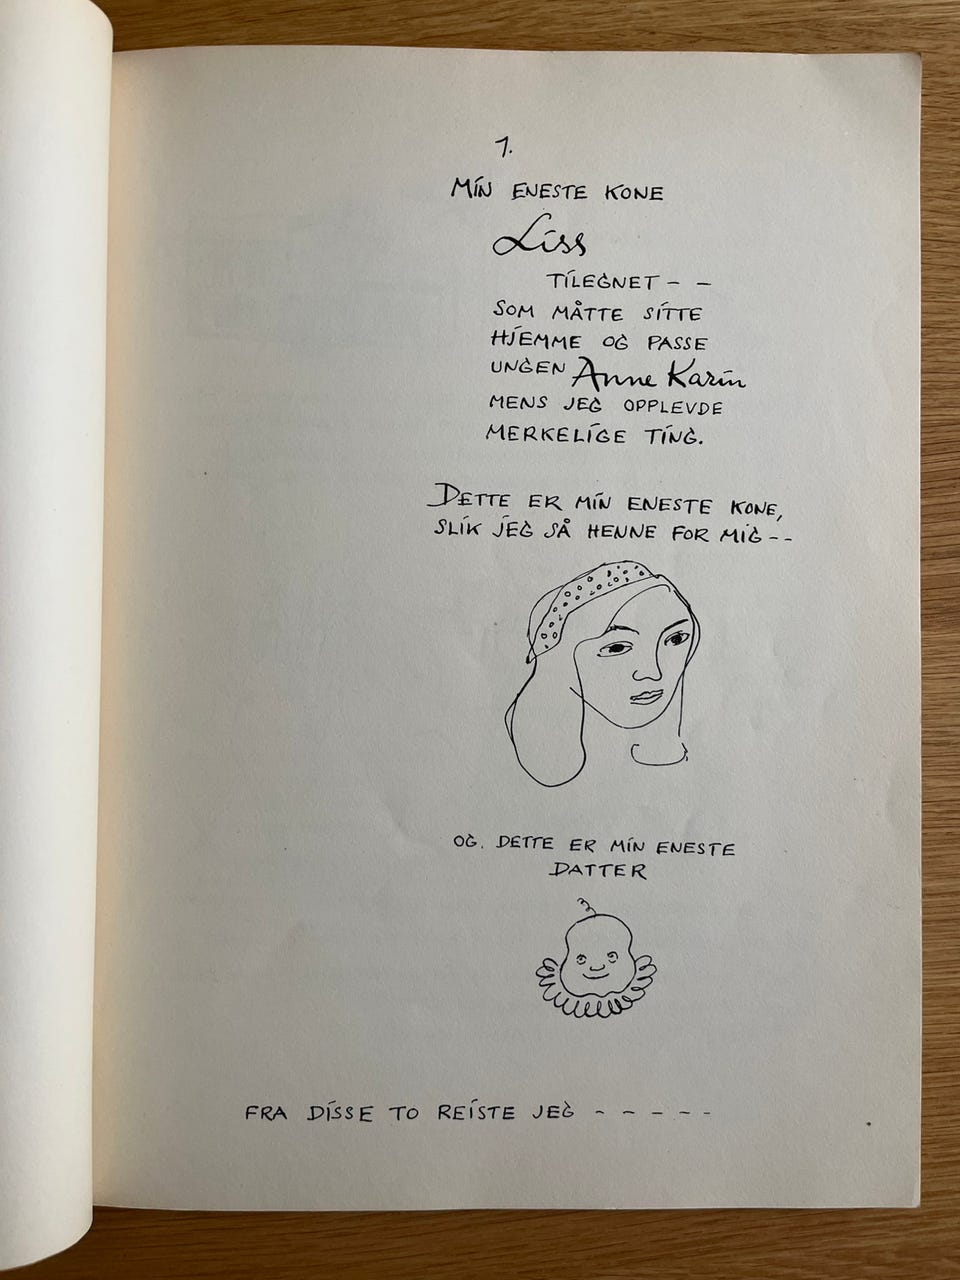 1.
MIN ENESTE KONE
Liss
TILEGNET - -
SOM MÅTTE SITTE
HJEMME OG PASSE
UNGEN Anne Karin
MENS JEG OPPLEVDE
MERKELIGE TING.
DETTE ER MIN ENESTE KONE,
SLIK JEG SÅ HENNE FOR MIG - -
OG. DETTE ER MIN ENESTE
DATTER
FRA DISSE TO REISTE JEG - - - - -